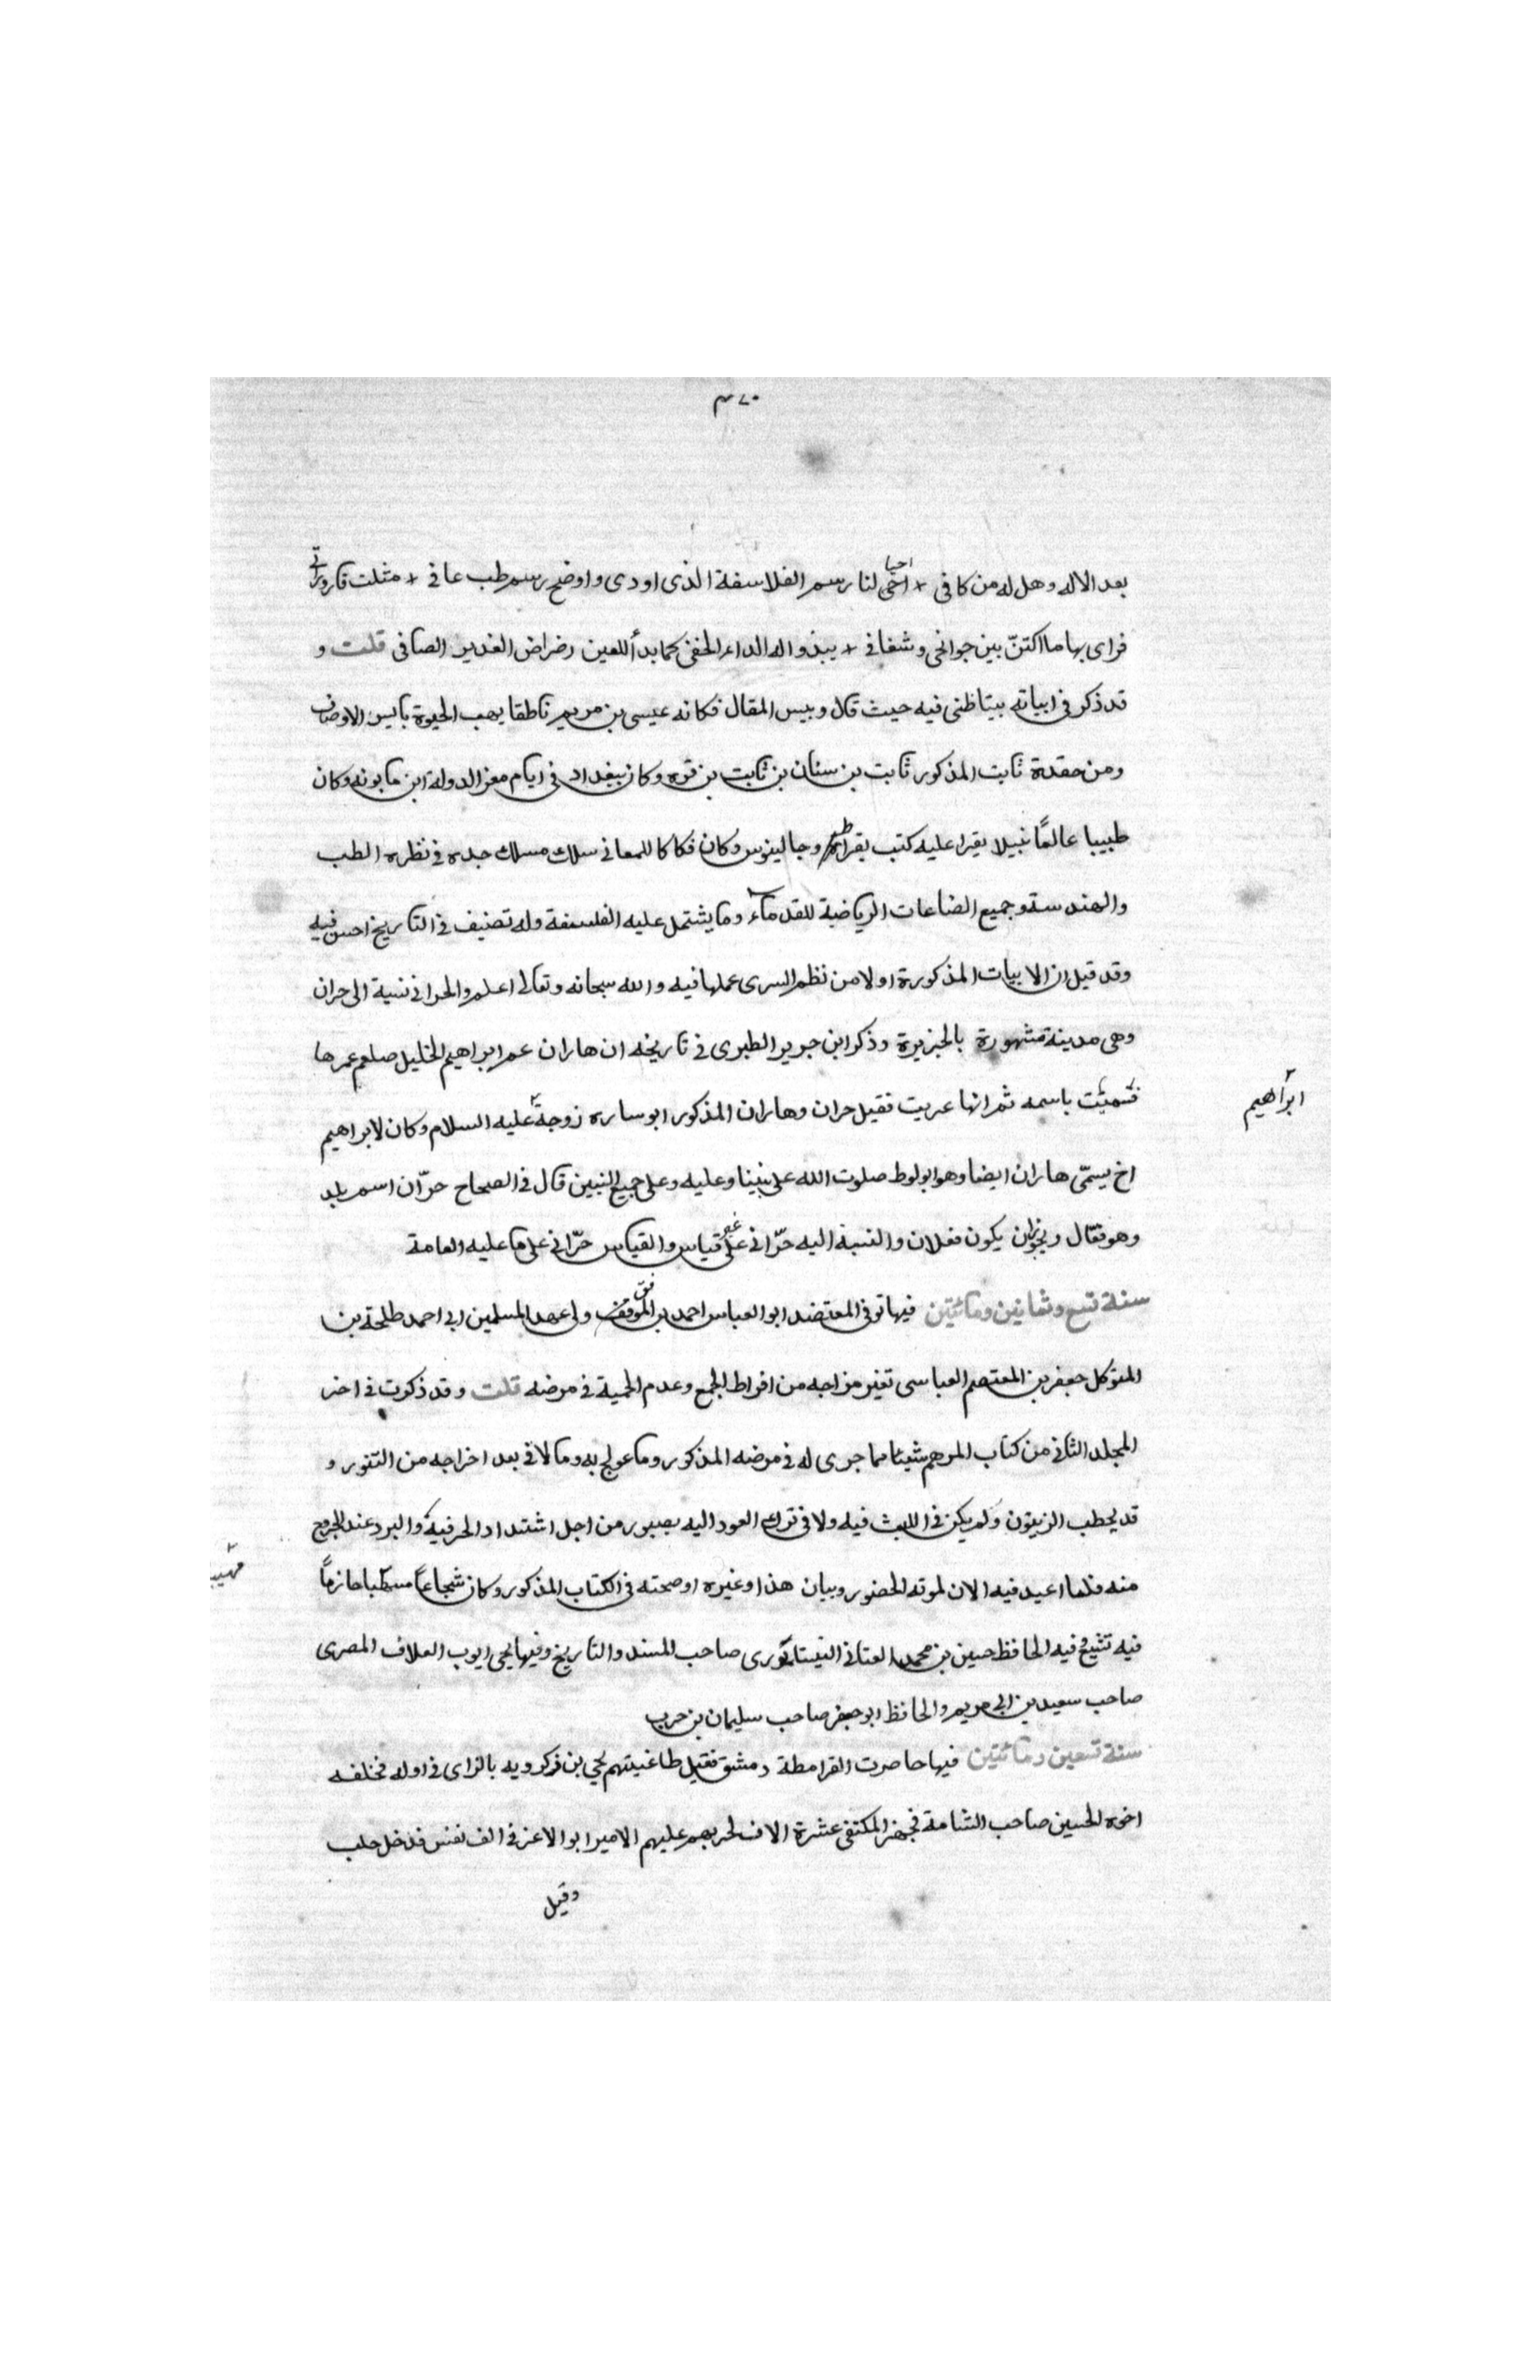 ٣٧٠
بعد الاله وهل له من كافى + احيا لنا رسم الفلاسفة الذى اودى واوضح رسم طب عافى + مثلت قارورتى
فراى بها ما اكتنّ بين جوانحى وشغافى + يبذو له الداء الخفى كما بدأ للعين رضراض الغدير الصافى قلت و
قد ذكر فى ابياته بيتا ظنى فيه حيث قال وبيس المقال فكانه عيسى بن مريم ناطقا يهب الحيوة بايسر الاوصاف
ومن حفدة ثابت المذكور ثابت بن سنان بن ثابت بن قره وكان ببغداد فى ايام معز الدولة ابن مابونه وكان
طبيبا عالمًا نبيلا يقرا عليه كتب بقراط وجالينوس وكان فكاكا للمعانى سلك مسلك جده فى نظره الطب
والهندسة وجميع الضاعات الرياضية للقدماء وما يشتمل عليه الفلسفة وله تصنيف فى التاريخ احسن فيه
وقد قيل ان الابيات المذكورة اولا من نظم السرى عملها فيه والله سبحانه وتعالى اعلم والحرانى نسبة الى حران
وهى مدينة مشهورة بالجزيرة وذكر ابن جرير الطبرى فى تاريخه ان هاران عم ابراهيم الخليل صلعم عمرها
فسميت باسمه ثم انها عربت فقيل حران وهاران المذكور ابو ساره زوجة عليه السلام وكان لابراهيم
ابراهيم
اخ يسمّى هاران ايضا وهو ابو لوط صلوت الله على نبينا وعليه وعلى جميع النبين قال فى الصحاح حرّان اسم بلد
وهو فقال ويجوزان يكون فعلان والنسبة اليه حرّانى على غير قياس والقياس حرّانى على ما عليه العامة
سنة تسع وثمانين ومائتين فيها توفى المعتضد ابو العباس احمد بن الموفق ولى عهد المسلمين ابى احمد طلحة بن
المتوكل جعفر بن المعتصم العباسى تغير مزاجه من افراط الجمع وعدم الحمية فى مرضه قلت وقد ذكرت فى اخر
المجلد الثانى من كتاب المرهم شيئا مما جرى له فى مرضه المذكور وما عولج به وما لاقى بعد اخراجه من التنور و
قد يحطب الزيتون ولم يكن فى اللبث فيه ولا فى ترك العود اليه بصبور من اجل اشتداد الحر فيه والبرد عند الخروج
منه فلما اعيد فيه الان لموته الحضور وبيان هذا وغيره اوضحته فى الكتاب المذكور وكان شجاعًا حازمًا
فيه تشيع فيه الحافظ حسين بن محمد العتانى النيسابورى صاحب المسند والتاريخ وفيها يحيى ايوب العلاف المصرى
صاحب سعيد بن ابى مريم والحافظ ابو جعفر صاحب سليمان بن حرب
سنة تسعين ومائتين فيها حاصرت القرامطة دمشق فقتل طاغيتهم يحيى بن زكرويه بالزاى فى اوله فخلفه
اخوه الحسين صاحب الشامة فجهز المكتفى عشرة الاف لحربهم عليهم الامير ابو الاعز فى الف نفس فدخل حلب
وقيل